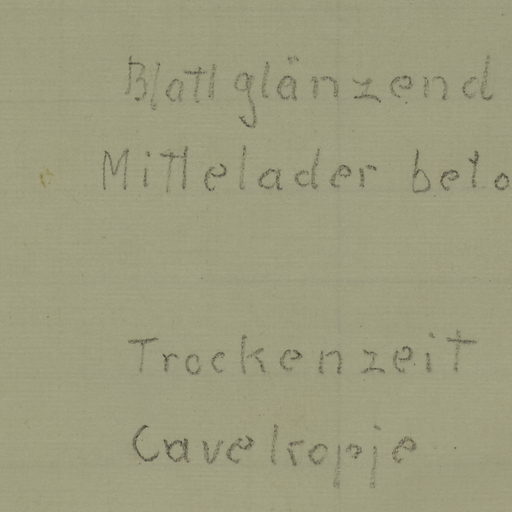 Blatt glänzend
Mittelader beto
Trockenzeit
Cavekopje